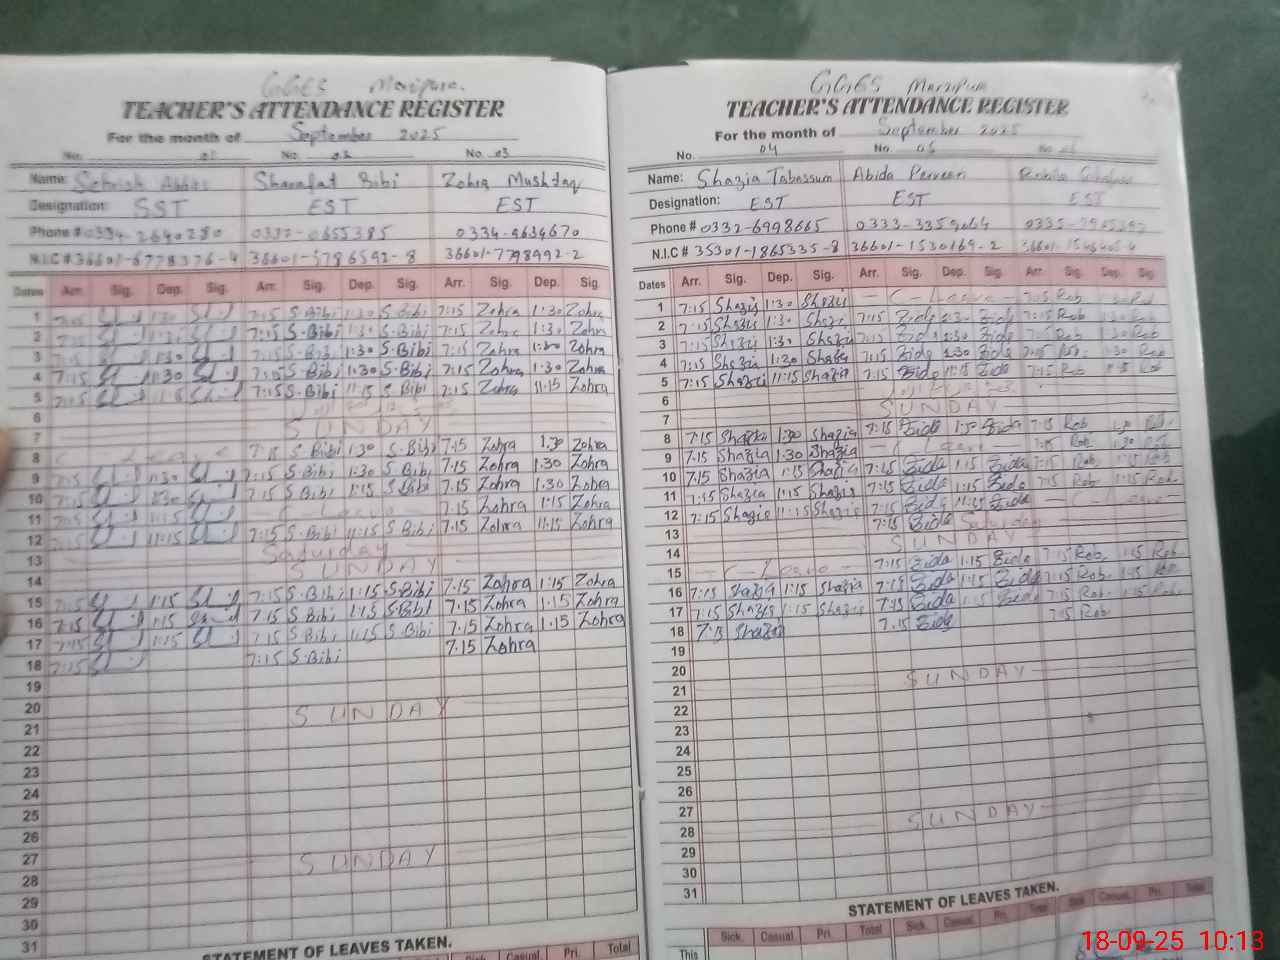 GGES
TEACHER'S ATTENDANCE REGISTER
For the month of September 2025
No. 01 No. 02 No. 03
Name: Sharafat Bibi Zohra Mushtaq
Designation: SST EST EST
Phone # 0334-2640280 0334-4634670
N.I.C # 36601-6778376-4 36601-5786592-8 36601-7798992-2
Dates Arr. Sig. Dep. Sig. Arr. Sig. Dep. Sig. Arr. Sig. Dep. Sig.
1 7:15 1:30 7:15 S.Bibi 1:30 S.Bibi 7:15 Zohra 1:30 Zohra
2 7:15 S.Bibi 1:30 S.Bibi 7:15 Zohra 1:30 Zohra
3 7:15 1:30 7:15 S.Bibi 1:30 S.Bibi 7:15 Zohra 1:30 Zohra
4 7:15 1:30 7:15 S.Bibi 1:30 S.Bibi 7:15 Zohra 1:30 Zohra
5 7:15 7:15 S.Bibi 11:15 S.Bibi 7:15 Zohra 11:15 Zohra
6
7 SUNDAY
8 Leave 7:15 S.Bibi 1:30 S.Bibi 7:15 Zohra 1:30 Zohra
9 7:15 1:30 7:15 S.Bibi 1:30 S.Bibi 7:15 Zohra 1:30 Zohra
10 7:15 1:30 7:15 S.Bibi 1:15 S.Bibi 7:15 Zohra 1:30 Zohra
11 7:15 1:15 C-Leave 7:15 Zohra 1:15 Zohra
12 7:15 11:15 7:15 S.Bibi 11:15 S.Bibi 7:15 Zohra 11:15 Zohra
13 Saturday
14 SUNDAY
15 7:15 1:15 7:15 S.Bibi 1:15 S.Bibi 7:15 Zohra 1:15 Zohra
16 7:15 1:15 7:15 S.Bibi 1:15 S.Bibi 7:15 Zohra 1:15 Zohra
17 7:15 1:15 7:15 S.Bibi 1:15 S.Bibi 7:15 Zohra 1:15 Zohra
18 7:15 7:15 S.Bibi 7:15 Zohra
19
20
21 SUNDAY
22
23
24
25
26
27
28 SUNDAY
29
30
31
STATEMENT OF LEAVES TAKEN.
Sick. Casual. Pri. Total
GGES
TEACHER'S ATTENDANCE REGISTER
For the month of September 2025
No. 04 No. 05 No. 06
Name: Shazia Tabassum Abida Perveen
Designation: EST EST EST
Phone # 0332-6998665
N.I.C # 35301-1865335-8 36601-1530169-2
Dates Arr. Sig. Dep. Sig. Arr. Sig. Dep. Sig. Arr. Sig. Dep. Sig.
1 7:15 Shazia 1:30 Shazia C-Leave 7:15 Rob
2 7:15 Shazia 1:30 Shazia 7:15 Bida 1:30 Bida 7:15 Rob
3 7:15 Shazia 1:30 Shazia 7:15 Bida 1:30 Bida 7:15 Rob 1:30 Rob
4 7:15 Shazia 1:30 Shazia 7:15 Bida 1:30 Bida 7:15 Rob 1:30 Rob
5 7:15 Shazia 11:15 Shazia 7:15 Bida 11:15 Bida 7:15 Rob Rob
6
7 SUNDAY
8 7:15 Shazia 1:30 Shazia 7:15 Bida 1:30 Bida 7:15 Rob 1:30 Rob
9 7:15 Shazia 1:30 Shazia C-Leave 7:15 Rob 1:30 Rob
10 7:15 Shazia 1:15 Shazia 7:15 Bida 1:15 Bida 7:15 Rob 1:15 Rob
11 7:15 Shazia 1:15 Shazia 7:15 Bida 1:15 Bida 7:15 Rob 1:15 Rob
12 7:15 Shazia 11:15 Shazia 7:15 Bida 11:15 Bida C-Leave
13 7:15 Bida Saturday
14 SUNDAY
15 C-Leave 7:15 Bida 1:15 Bida 7:15 Rob 1:15 Rob
16 7:15 Shazia 1:15 Shazia 7:15 Bida 1:15 Bida 7:15 Rob 1:15 Rob
17 7:15 Shazia 1:15 Shazia 7:15 Bida 1:15 Bida 7:15 Rob 1:15 Rob
18 7:15 Shazia 7:15 Bida 7:15 Rob
19
20
21 SUNDAY
22
23
24
25
26
27
28 SUNDAY
29
30
31
STATEMENT OF LEAVES TAKEN.
Sick. Casual Pri. Total Sick. Casual. Pri. Total Sick Casual. Pri. Total
This
18-09-25 10:13